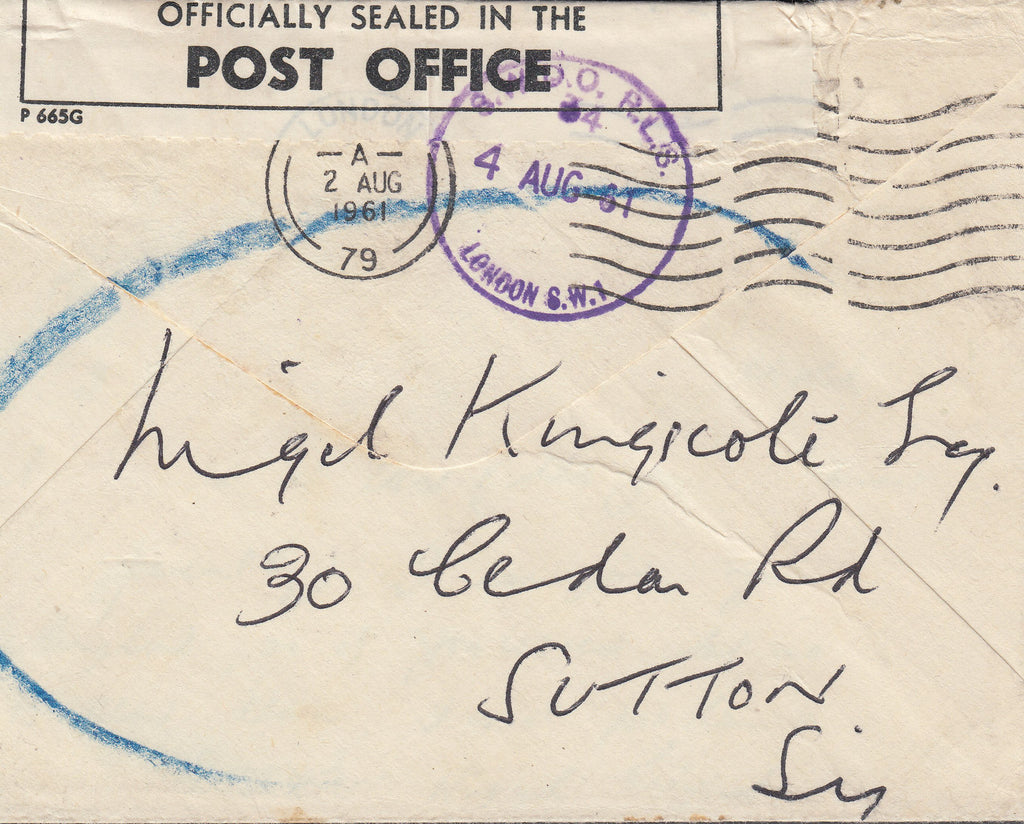 OFFICIALLY SEALED IN THE
POST OFFICE
P 665G
LONDON
— A —
2 AUG
1961
79
S.W.D.O. R.L.S.
4 AUG 61
LONDON S.W.1
Nigel Kingscote Esq.
30 Cedar Rd
SUTTON
Sy